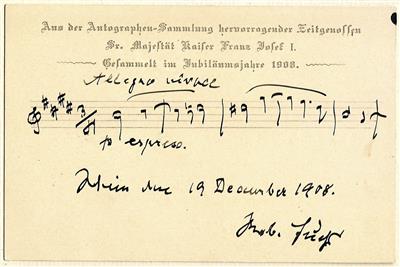 Aus der Autographen-Sammlung hervorragender Zeitgenossen
Sr. Majestät Kaiser Franz Josef I.
Gesammelt im Jubiläumsjahre 1908.
Allegro vivace
3/4
p espress.
Wien den 19 December 1908.
Rob. Fuchs